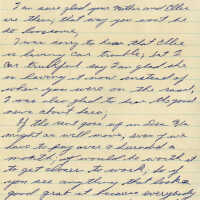 I'm sure glad your Mother and Ellie
are there, that way you won't be
so lonesome.
I was sorry to hear that Ellie
is having Car trouble, but I
can truthfull say I'm glad she
is having it now instead of
when you were on the road,
I was also glad to hear the good
news about
If the rent goes up in Dec. We
might as well move, even if we
have to pay over a hundred a
month, it would be worth it
to get closer to work, so if
you see anything that looks
good grab it because everybody